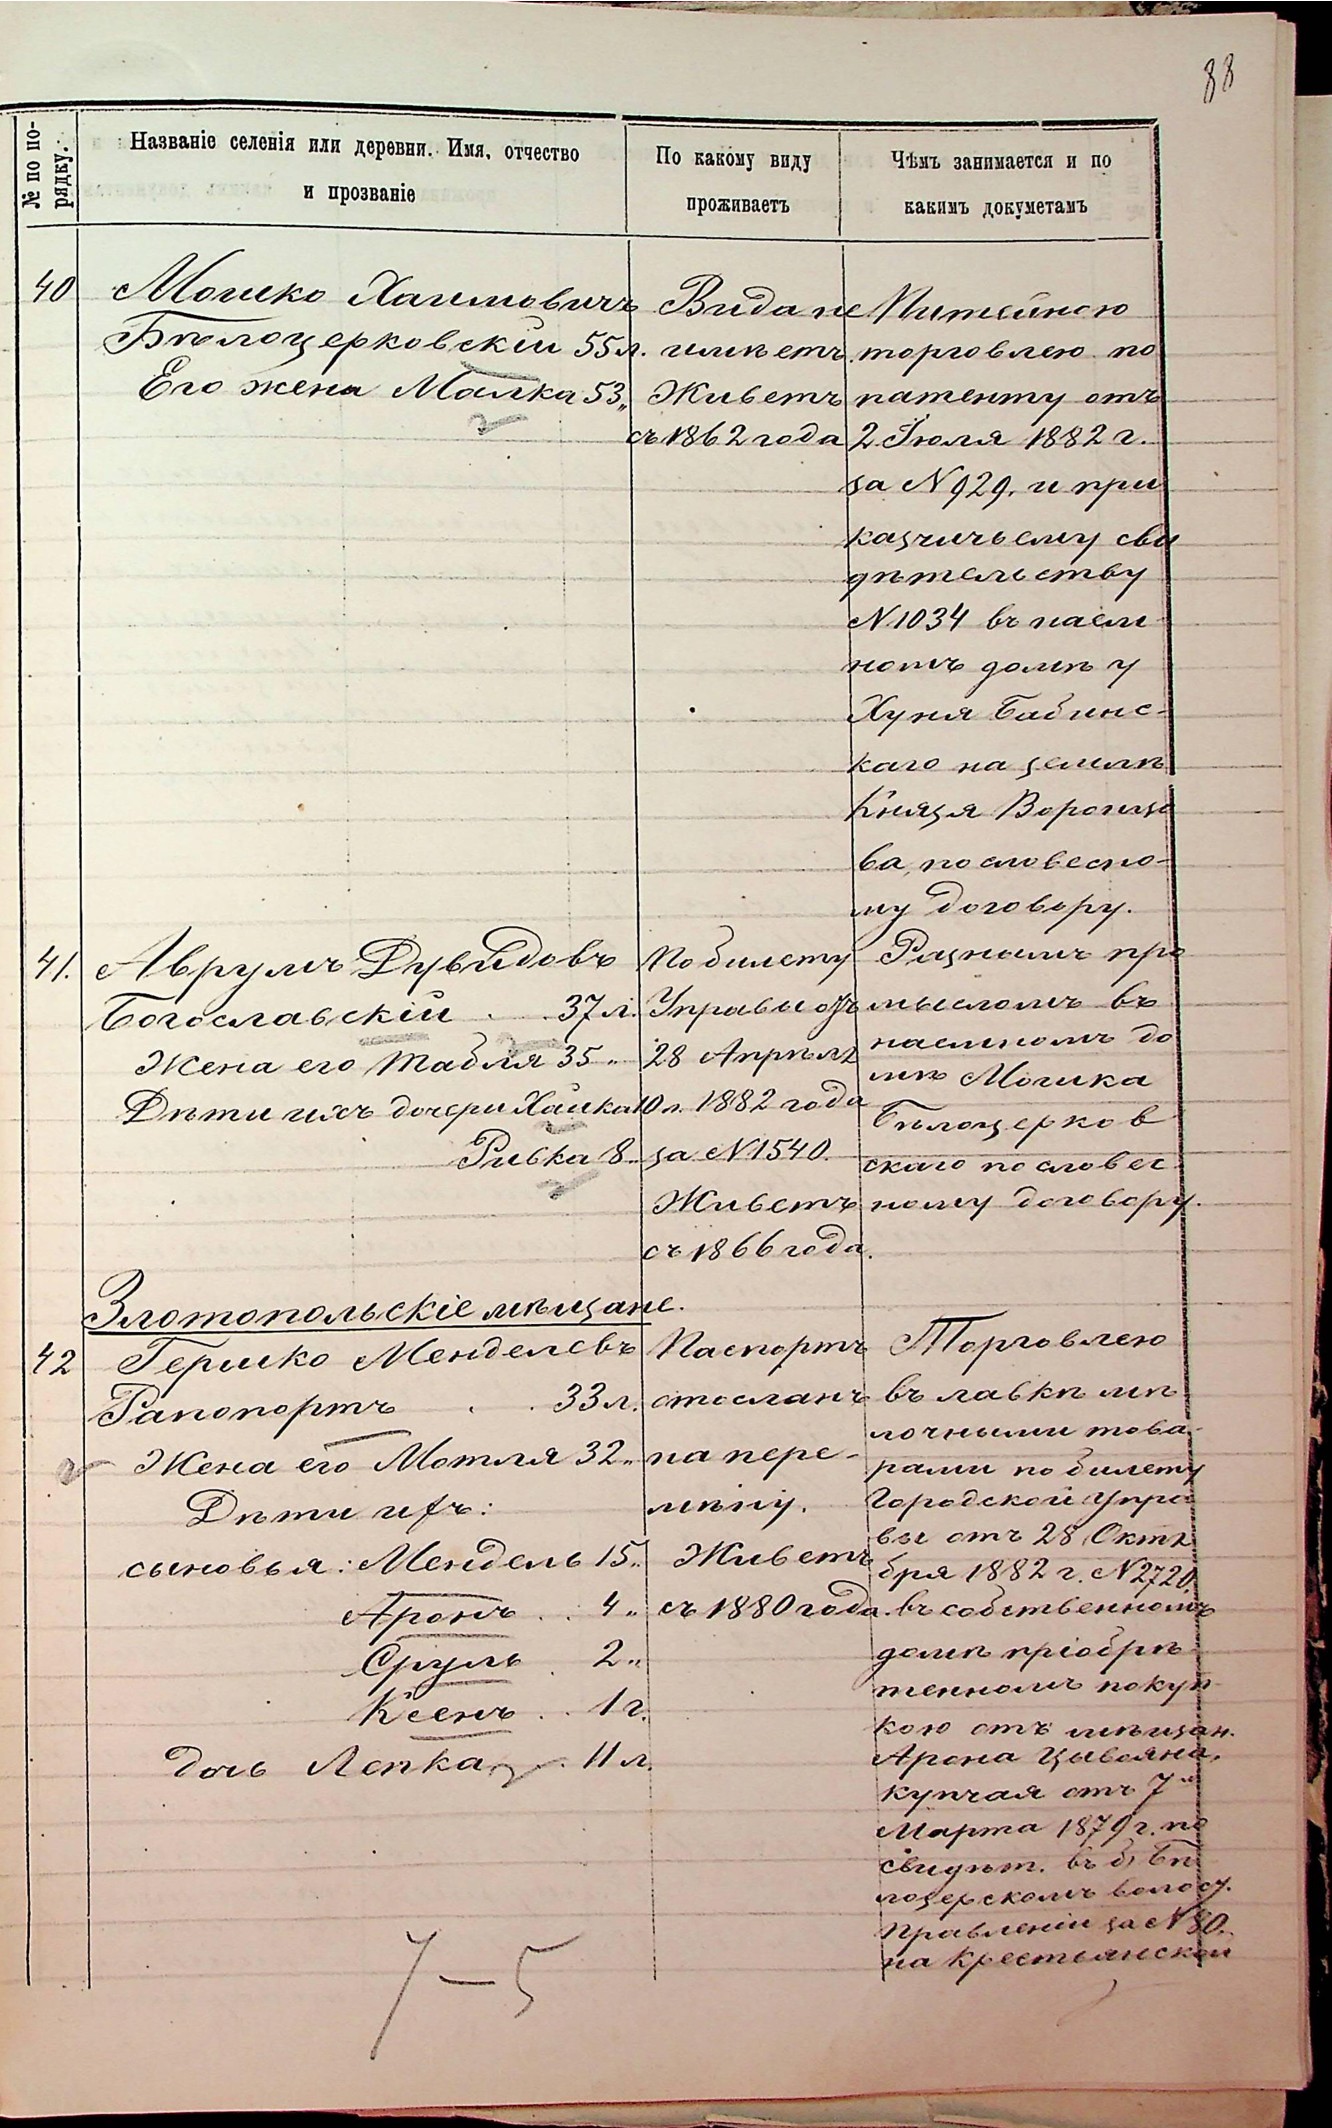 88
№ по по-
рядку.
Названіе селенія или деревни. Имя, отчество
и прозваніе
По какому виду
проживаетъ
Чѣмъ занимается и по
какимъ докуметамъ
40
Мошко Хаимовичъ
Бѣлоцерковскій 55 л.
Его жена Малка 53 „
Вида не
имѣетъ.
Живетъ
съ 1862 года
Питейною
торговлею по
патенту отъ
2 Іюля 1882 г.
за № 929. и при
казчичьему сви
дѣтельству
№ 1034 въ наем
номъ домѣ у
Хуня Бабинс-
каго на землѣ
Князя Воронцо
ва, по словесно-
му договору.
41.
Аврумъ Дувидовъ
Богославскій . . 37 л.
Жена его Табля 35 „
Дѣти ихъ дочери Хайка 10 л.
Ривка 8 „
По билету
Управы отъ
28 Апрѣля
1882 года
за № 1540.
Живетъ
съ 1866 года.
Разнымъ про
мысломъ въ
наемномъ до
мѣ Мошка
Бѣлоцерков
скаго по словес
ному договору.
Златопольскіе мѣщане.
42
Гершко Менделевъ
Рапопортъ . . 33 л.
Жена его Мотля 32 „
Дѣти ихъ:
сыновья: Мендель 15 „
Аронъ . . 4 „
Сруль . 2 „
Ксенъ . . 1 г.
дочь Лепка . 11 л.
Паспортъ
отосланъ
на пере-
мѣну.
Живетъ
съ 1880 года.
Торговлею
въ лавкѣ мѣ
лочными това-
рами по билету
Городской Упра
вы отъ 28 Октя
бря 1882 г. № 2720.
въ собственномъ
домѣ пріобрѣ
тенномъ покуп-
кою отъ мѣщан.
Арона Цывьяна,
купчая отъ 7го
Марта 1879 г. по
свидѣт. въ б. Бѣ
лозерскомъ волост.
Правленіи за № 80.
на крестьянской
7-5